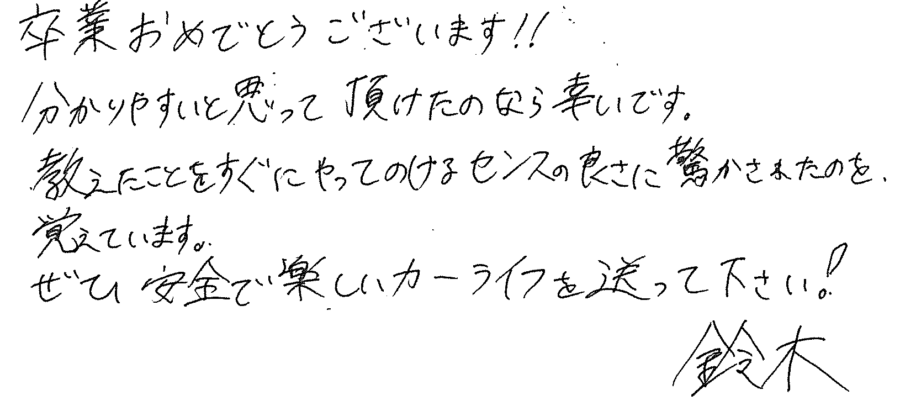 卒業おめでとうございます!!
分かりやすいと思って頂けたのなら幸いです。
教えたことをすぐにやってのけるセンスの良さに驚かされたのを、
覚えています。
ぜひ安全で楽しいカーライフを送って下さい!
鈴木